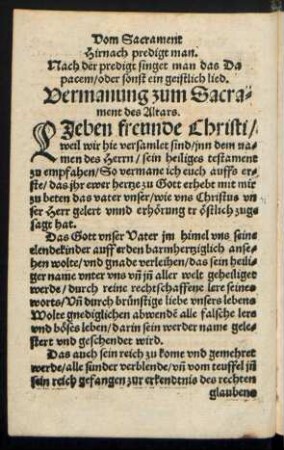 Vom Sacrament
Hirnach predigt man.
Nach der predigt singet man das Da
pacem/oder sonst ein geistlich lied.
Vermanung zum Sacra-
ment des Altars.
LJeben freunde Christi/
weil wir hie versamlet sind/jnn dem na-
men des Herrn/sein heiliges testament
zu empfahen/So vermane ich euch auffs er-
ste/das jhr ewer hertze zu Gott erhebt mit mir
zu beten das vater vnser/wie vns Christus vn-
ser Herr gelert vnnd erhörung tröstlich zuge
sagt hat.
Das Gott vnser Vater jm himel vns seine
elende kinder auff erden barmhertziglich anse-
hen wolte/vnd gnade verleihen/das sein heili-
ger name vnter vns vñ jñ aller welt geheiliget
werde/durch reine rechtschaffene lere seines
worts/Vñ durch brünstige liebe vnsers lebens
Wolte gnediglichen abwendē alle falsche lere
vnd böses leben/darin sein werder name gele-
stert vnd geschendet wird.
Das auch sein reich zu kome vnd gemehret
werde/alle sunder verblende/vñ vom teuffel jñ
sein reich gefangen zur erkendtnis des rechten
glaubens